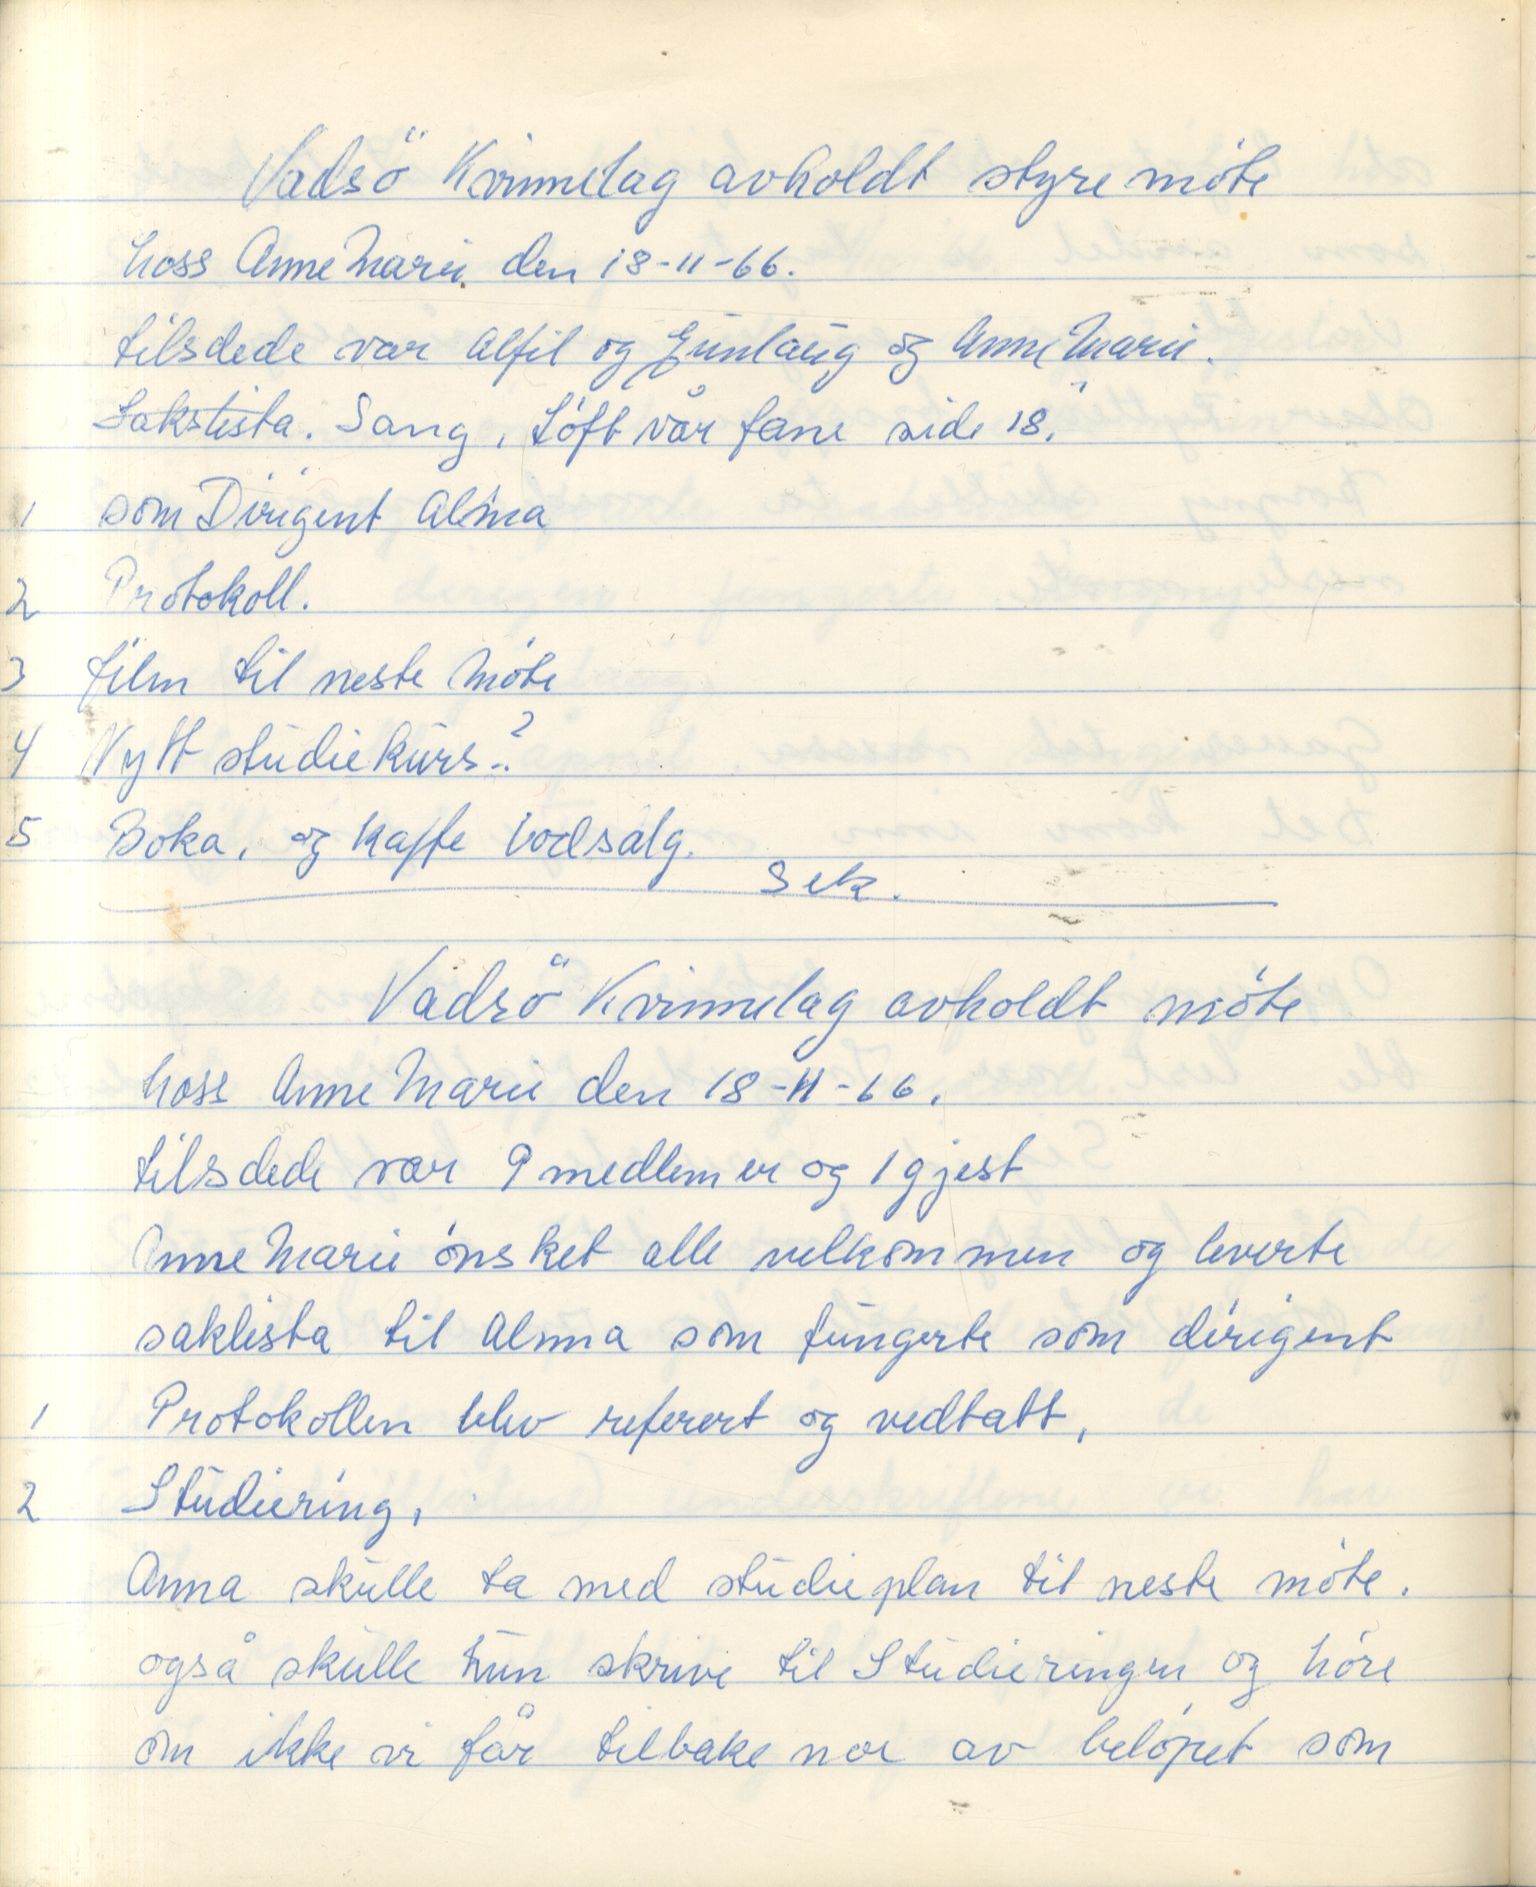 Vadsö Kvinnelag avholdt styremöte
hoss AnneMarie den 18-11-66.
tilsdede var Alfil og Gunlaug og AnneMarie.
Sakslista. Sang, Löft vår fane side 18.
1 som Dirigent Alma
2 Protokoll.
3 film til neste möte
4 Nytt studiekurs.?
5 Boka, og kaffe lodsalg.
Sek.
Vadsö Kvinnelag avholdt möte
hoss AnneMarie den 18-11-66.
tilsdede var 9 medlemer og 1 gjest
AnneMarie önsket alle velkommen og leverte
saklista til Alma som fungerte som dirigent
1 Protokollen blev referert og vedtatt,
2 Studiering,
Anna skulle ta med studieplan til neste möte.
også skulle hun skrive til Studieringen og höre
om ikke vi får tilbake noe av belöpet som